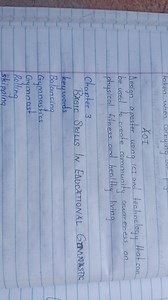 AOI
Design a poster using ict and technology that can
be used to create community awareness on
physical fitness and healthy living.
Chapter 3
BASIC SKILLS IN EDUCATIONAL GYMNASTIC
Keywords
Balancing
Gymnastics
Gymnast
Rolling
Skipping